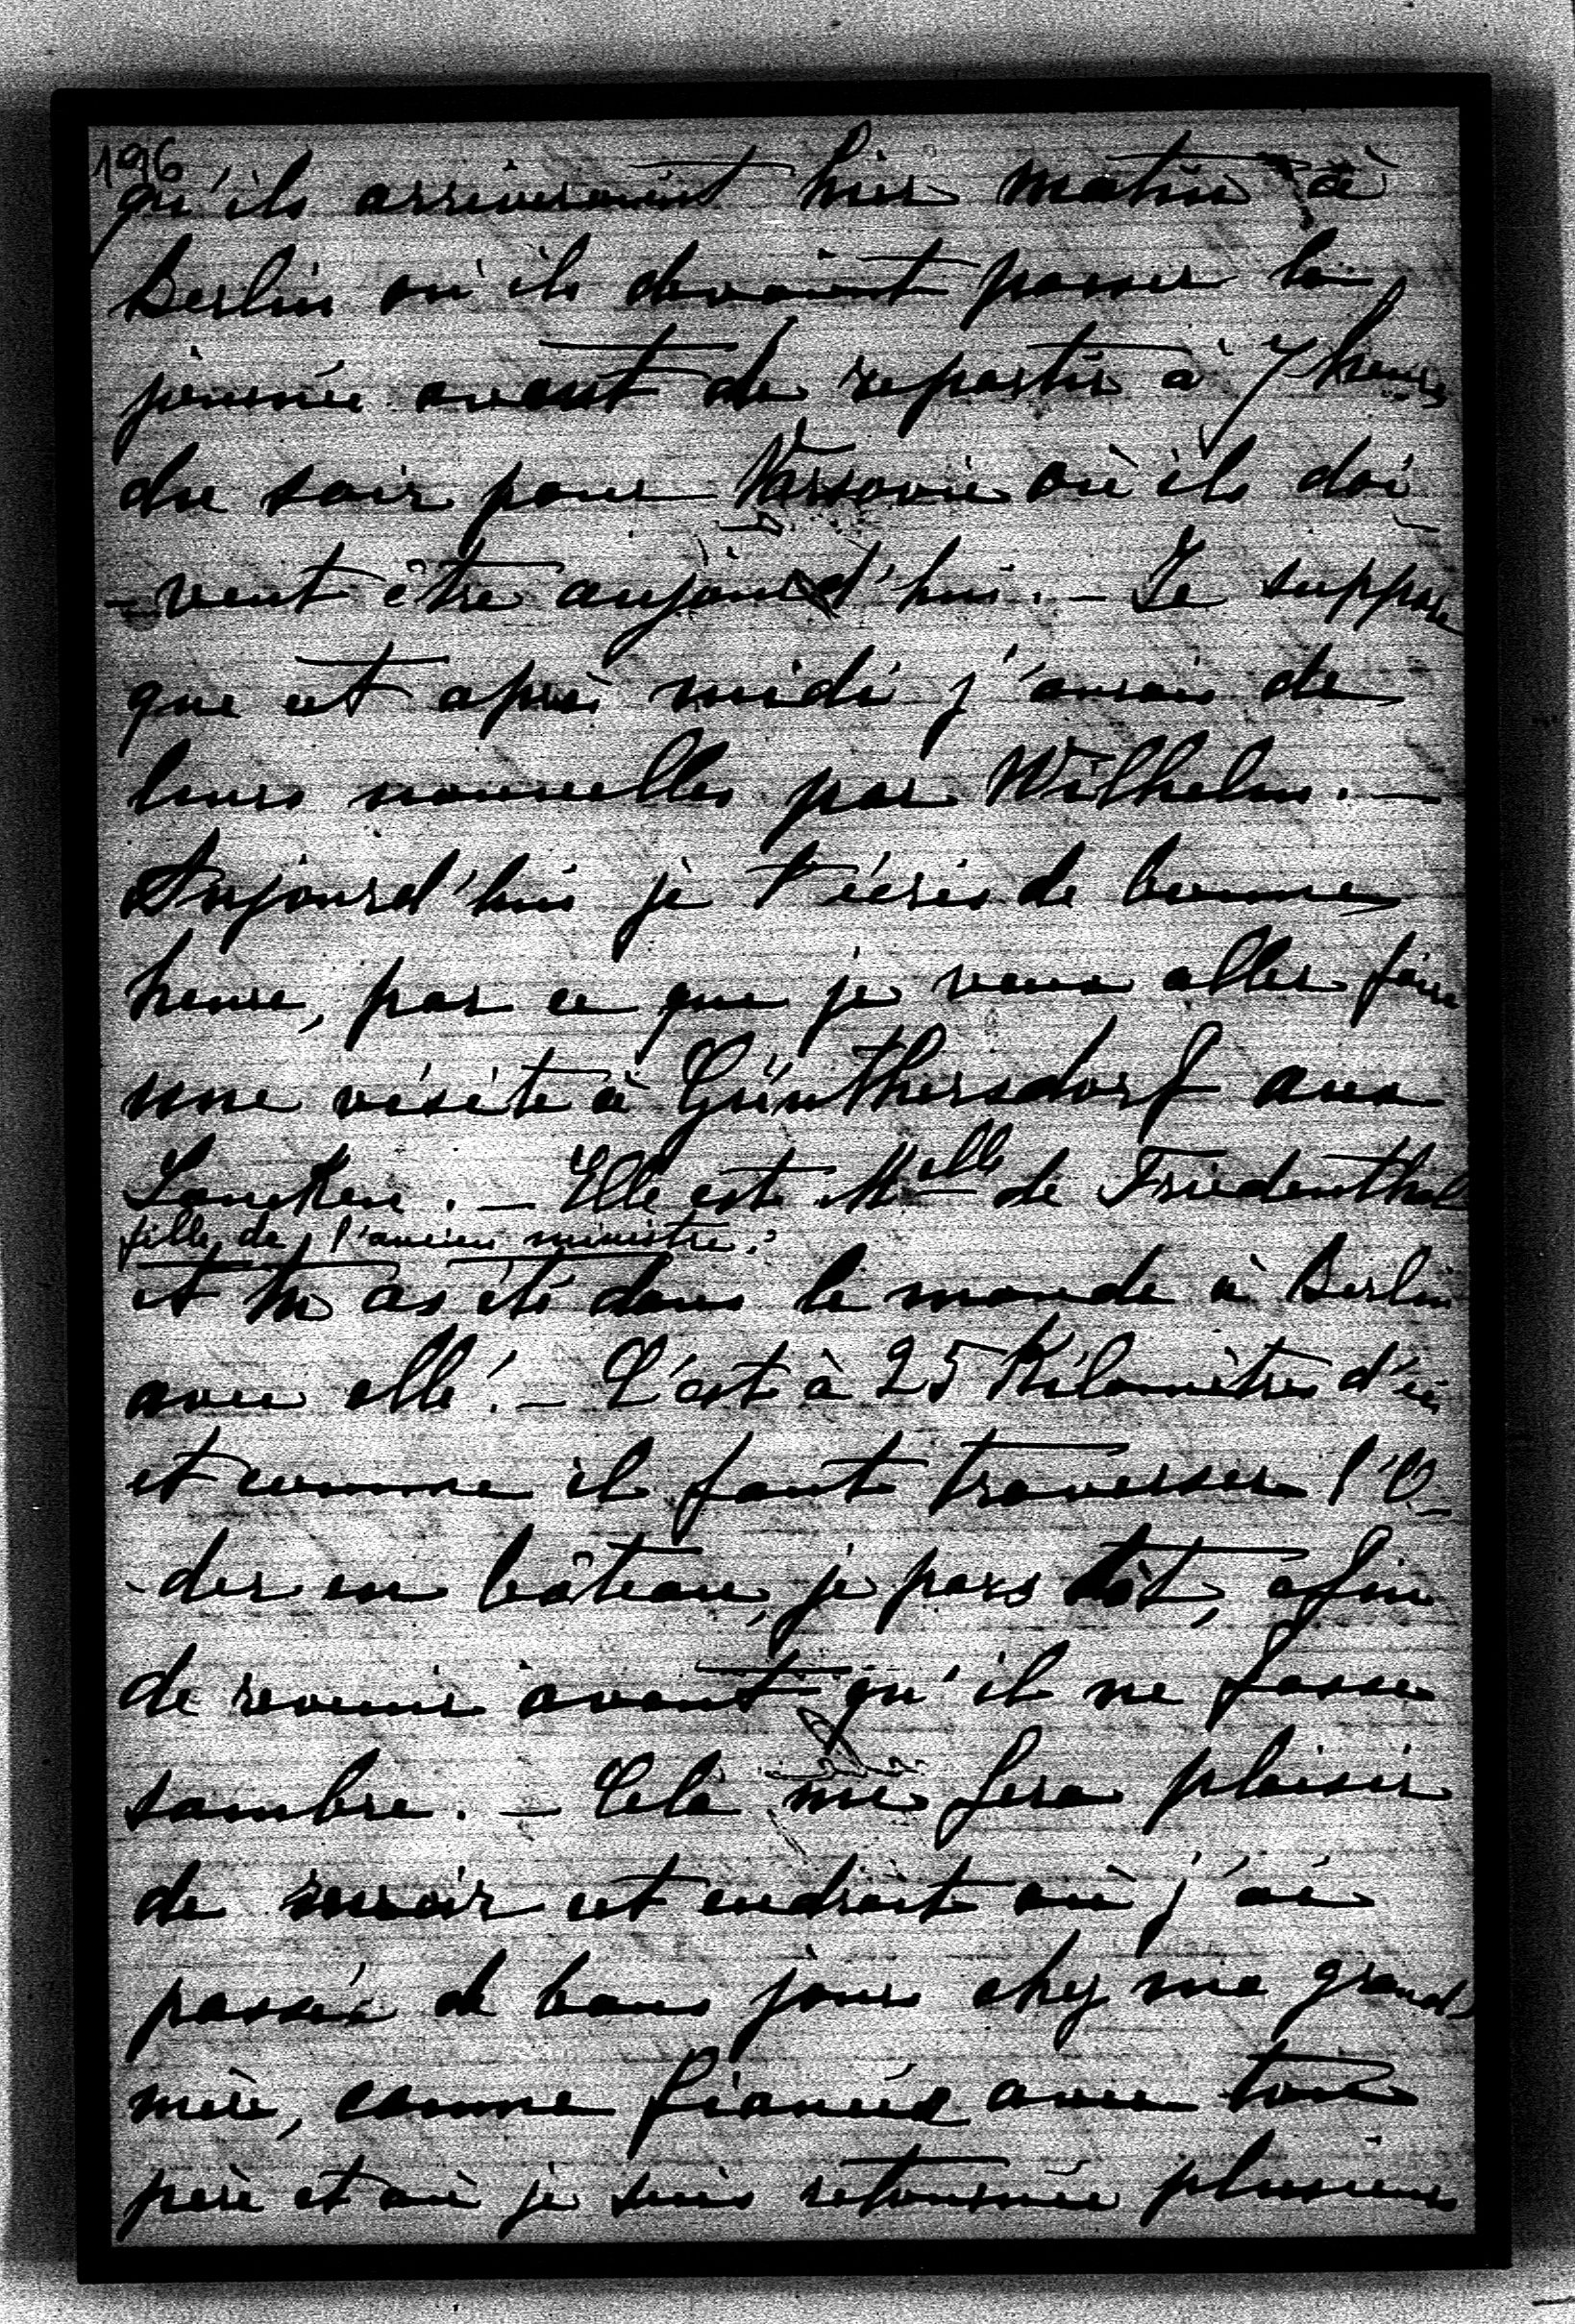 196
qu'ils arriveraient hier matin à
Berlin où ils devaient passer la
journée avant de repartir à 7 heures
du soir pour Varsovie où ils doi
-vent être aujourd'hui. – Je suppose
que cet après midi j'aurai de
leurs nouvelles par Wilhelm. –
Aujourd'hui je t'écris de bonne
heure, par ce que je veux aller faire
une visite à Günthersdorf aux
Lancken. – Elle est Melle de Friedenthal
fille de l'ancien ministre.
et tu as été dans le monde à Berlin
avec elle! – C'est à 25 Kilomètres d'ici
et comme il faut traverser l'O-
-der en bâteau, je pars tôt, afin
de revenir avant qu'il ne fasse
sombre. – Cela me fera plaisir
de revoir cet endroit où j'ai
passée de bons jours chez ma grand
mère, comme fiancée avec ton
père et où je suis retournée plusieurs